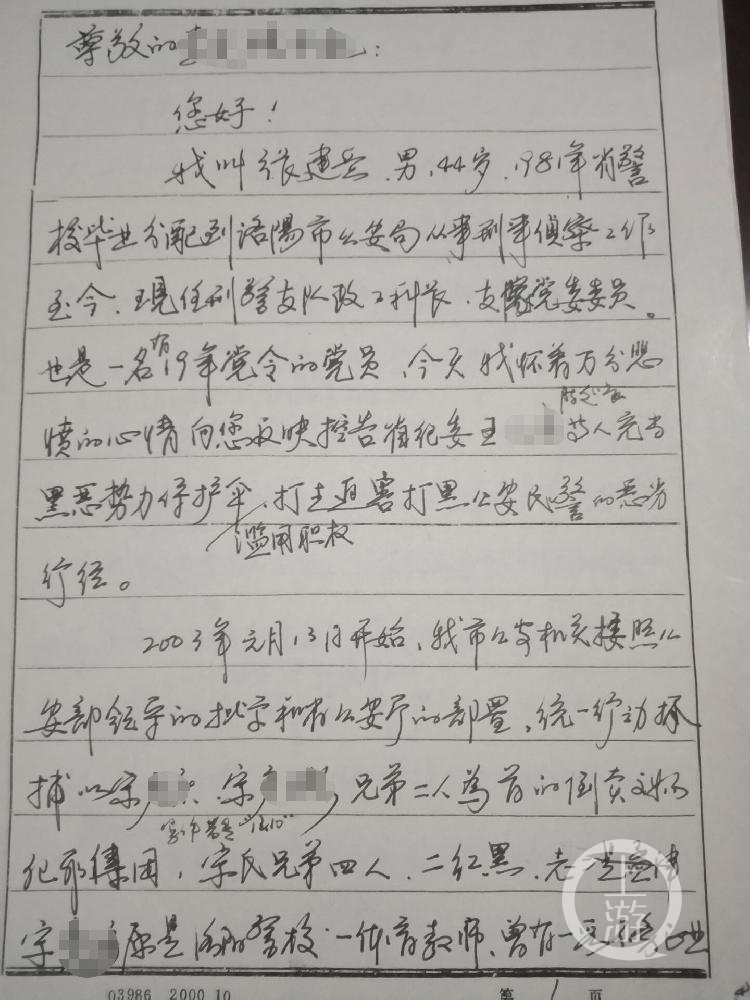 尊敬的
您好！
我叫张建兵、男、44岁、1981年省警
校毕业分配到洛阳市公安局从事刑事侦察工作
至今、现任刑警支队政工科长、支队党委委员。
也是一名有19年党令的党员、今天我怀着万分悲
愤的心情向您反映控告省纪委王 等人充当
黑恶势力保护伞、滥用职权打击迫害打黑公安民警的恶劣
行径。
2003年元月13日开始、我市公安机关按照公
安部领导的批字和省公安厅的部署、统一行动抓
捕以宋 宋 兄弟二人为首的倒卖文物
犯罪集团、宋氏兄弟四人、二红黑、老
宋 原是洛阳警校一体育教师、曾有一
上游
03986 2000.10 第 1 页